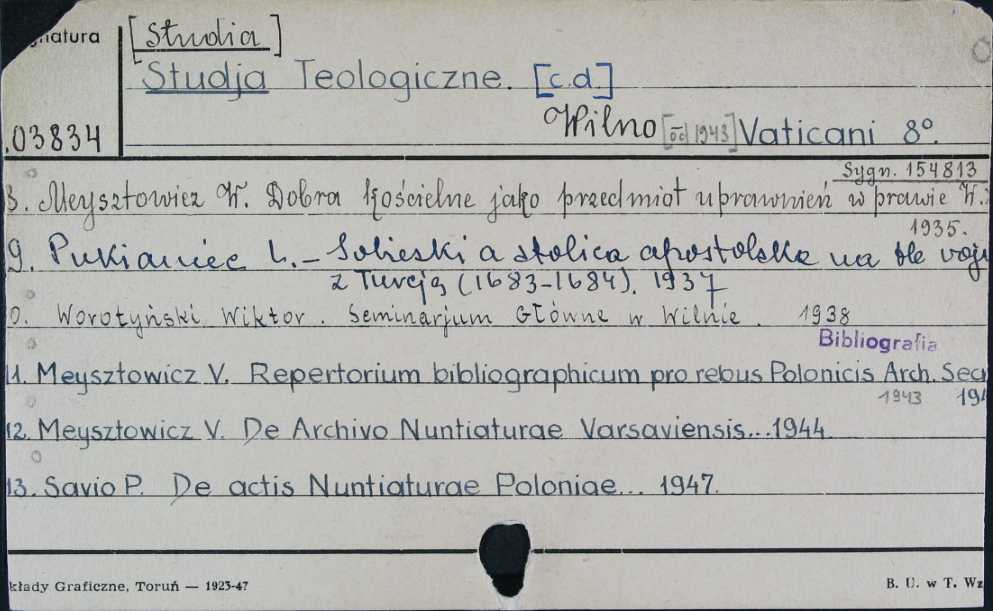 gnatura
[Studia]
Studja Teologiczne. [c.d.]
.03834
Wilno [od 1943] Vaticani 8º.
Sygn. 154813
8. Meysztowicz W. Dobra kościelne jako przedmiot uprawnień w prawie W.
1935.
9. Pukianiec L. – Sobieski a stolica apostolska na tle wojn
z Turcją (1683–1684). 1937
0. Worotyński Wiktor. Seminarjum Główne w Wilnie. 1938
Bibliografia
11. Meysztowicz V. Repertorium bibliographicum pro rebus Polonicis Arch. Secr
1943 194
12. Meysztowicz V. De Archivo Nuntiaturae Varsaviensis...1944
13. Savio P. De actis Nuntiaturae Poloniae... 1947.
kłady Graficzne, Toruń — 1923-47
B. U. w T. Wz